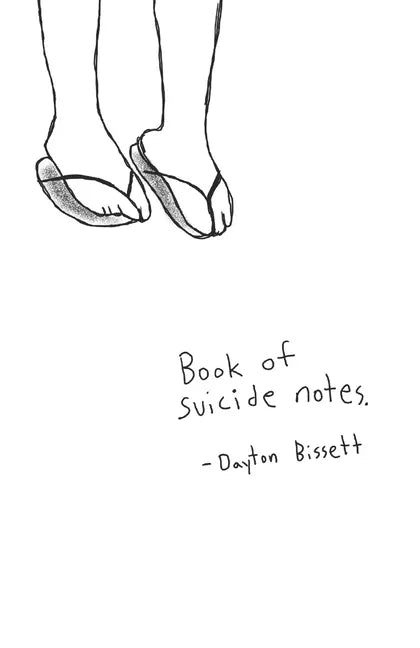 Book of
suicide notes.
- Dayton Bissett